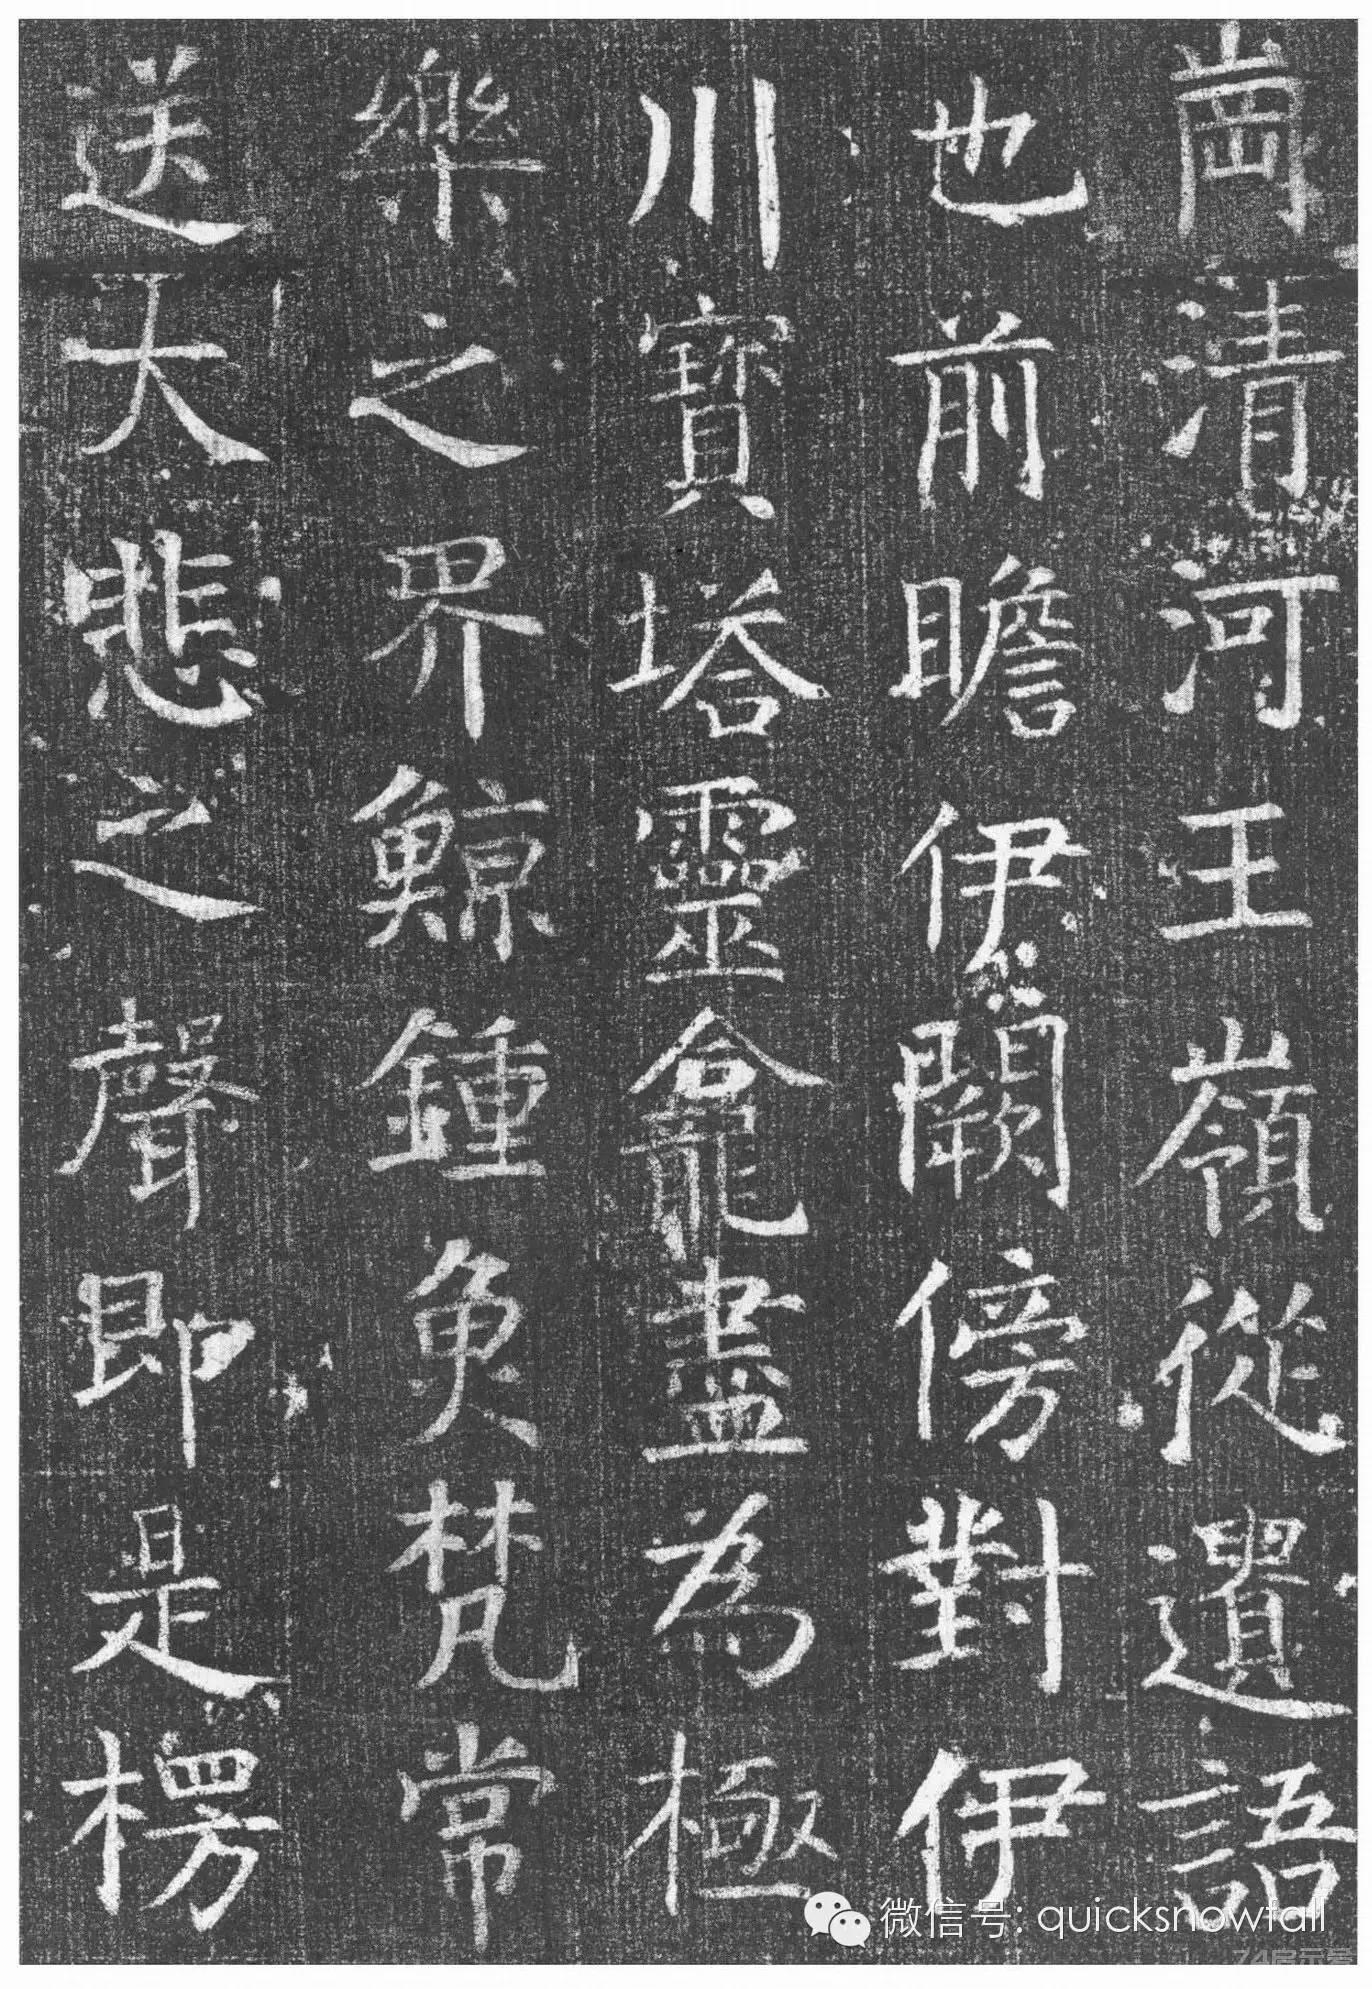 崗清河王嶺從遺語
也前瞻伊闕傍對伊
川寶塔靈龕盡為極
樂之界鯨鍾魚梵常
送大悲之聲即是楞
微信号: quicksnowfall